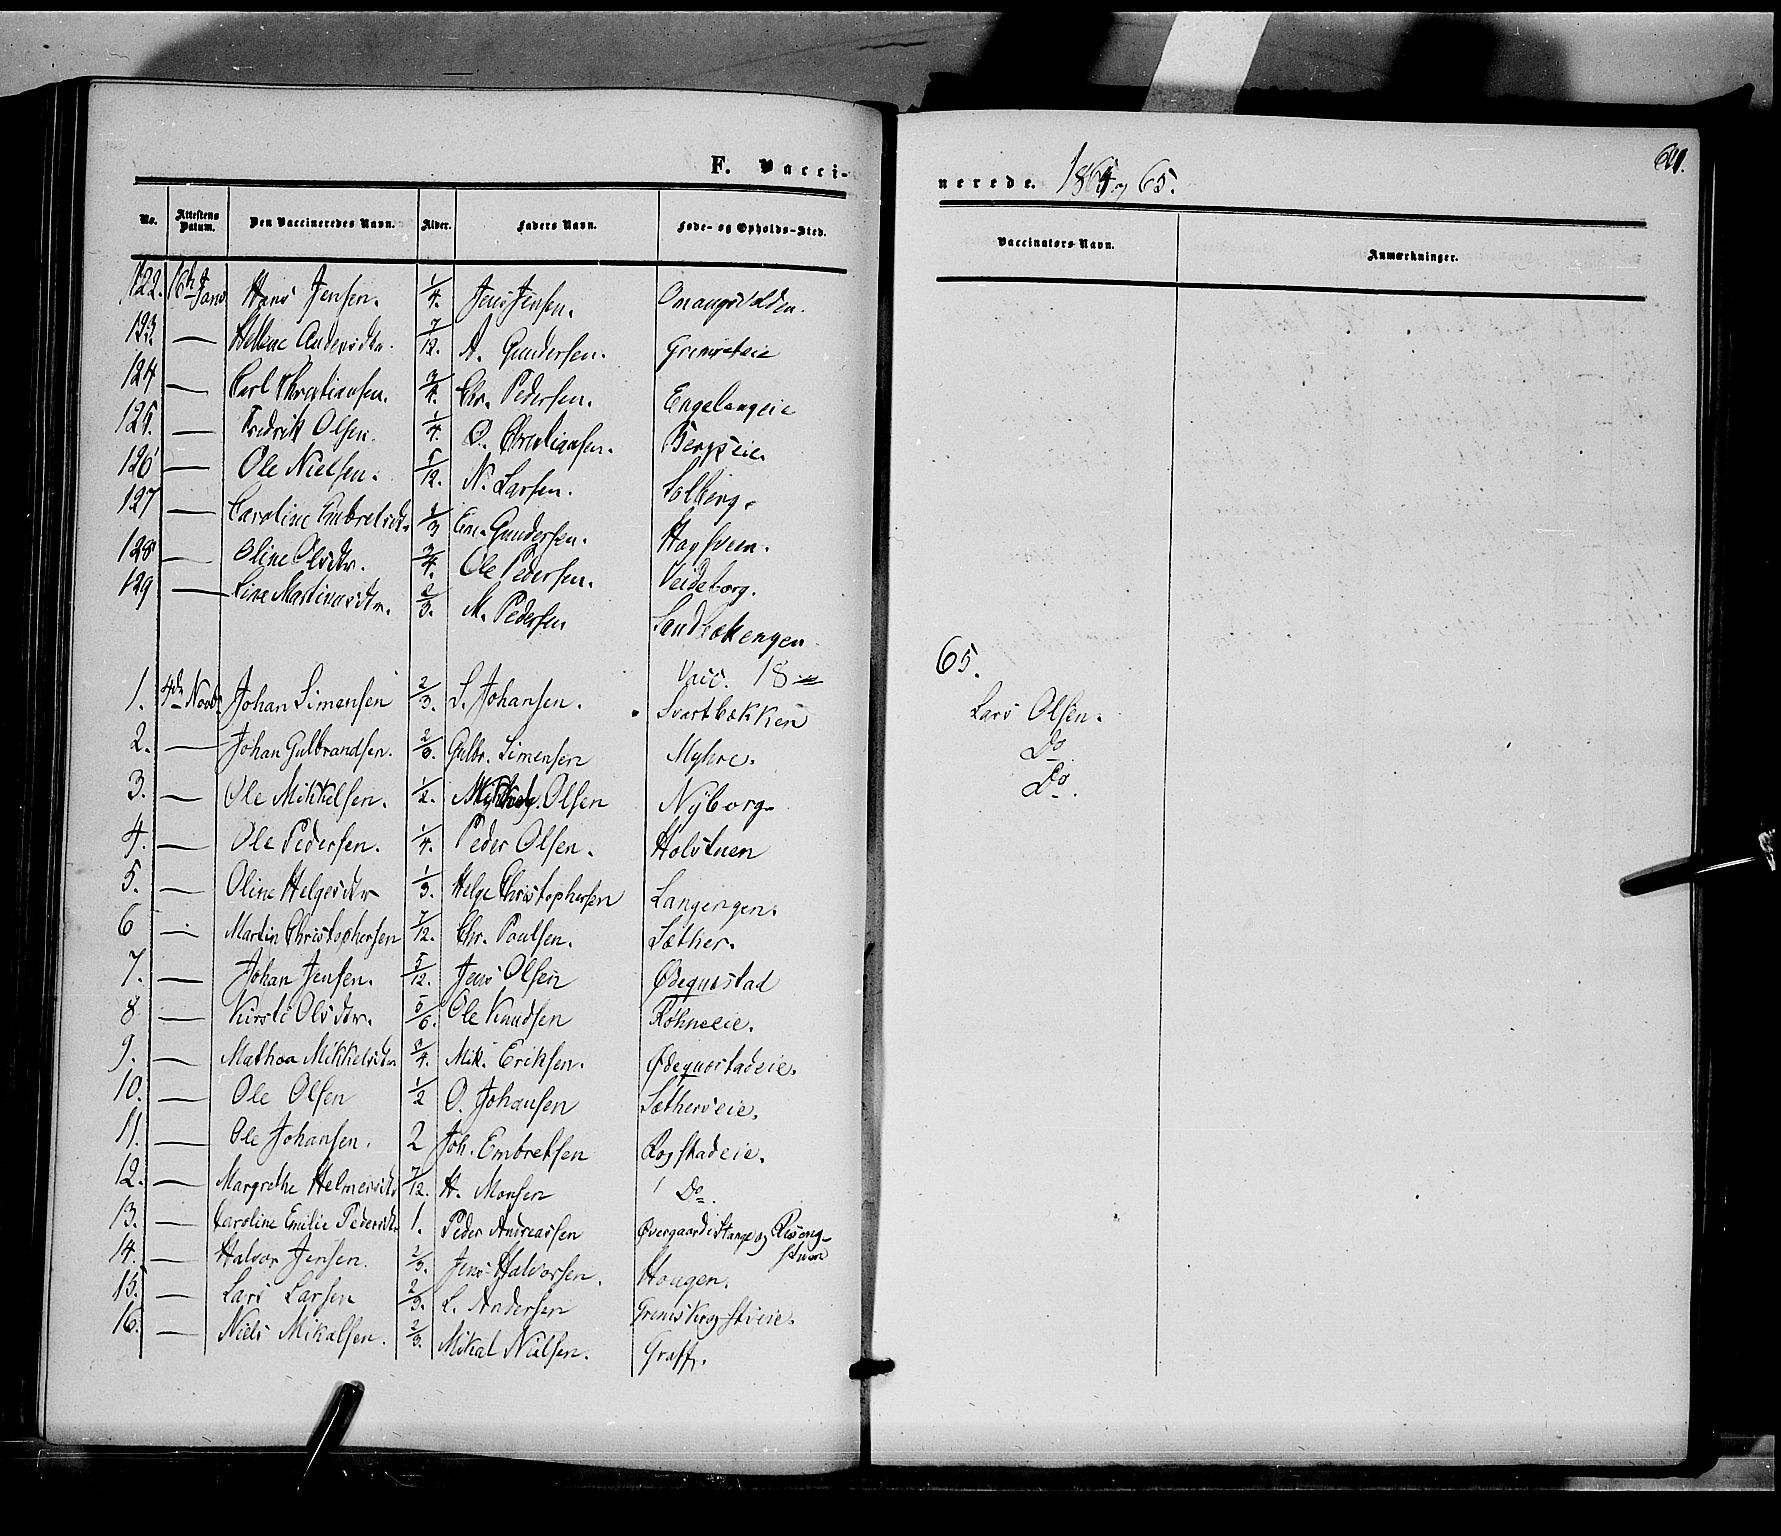 F. Vacci-
nerede. 1864 og 65.
No. Attestens Datum. Den Vaccineredes Navn. Alder. Faders Navn. Føde- og Opholds-Sted. Vaccinators Navn. Anmærkninger.
122. Hans Jensen. 1/4. Jens Jensen.
123. — Andersdtr. 7/12. A. Gundersen.
124 — Carl Christiansen. 3/4. Chr. Pedersen. Engelangeie
125. — Fredrik Olsen. 1/4. O. Christiansen. Bergseie.
126 — Ole Nielsen. 5/12. N. Larsen. Solberg.
127 — Caroline Embretsdtr 1/3 Em. Gundersen.
128 — Oline Olsdtr. 3/4. Ole Pedersen. Veideborg.
129 — Line Martinusdtr. 2/3. M. Pedersen Sandbækengen
Vacc. 18 65.
1. 4de Novbr. Johan Simensen 2/3. S. Johansen. Svartbækken Lars Olsen.
2. — Johan Gulbrandsen. 2/3. Gulbr. Simensen Myhre. Do
3. — Ole Mikkelsen. 1/2. Olsen Nyborg. Do.
4. — Ole Pedersen. 1/4. Peder Olsen. Holstuen
5. — Oline Helgesdtr 1/3. Helge Christophersen Langengen.
6 — Martin Christophersen 7/12. Chr. Poulsen. Sæther.
7. — Johan Jensen. 5/12. Jens Olsen Ødequistad
8 — Kirsti Olsdtr. 5/6. Ole Knudsen Røhneeie.
9. — Mathea Mikkelsdtr 3/4. Mik. Eriksen. Ødequistadeie.
10. — Ole Olsen 1/2 O. Johansen Sætherseie.
11. — Ole Johansen. 2 Joh. Embretsen Rogstadeie.
12. — Margrethe Helmersdtr 7/12. H. Monsen Do.
13. — Caroline Emilie Pedersdtr 1. Peder Andreassen Øvergaard i Stange og Riseng-
stuen
14. — Halvor Jensen. 2/3. Jens Halvorsen. Haugen.
15. — Lars Larsen 2/3. L. Andersen
16. — Niels Mikalsen. 2/3. Mikal Nielsen. Graff.